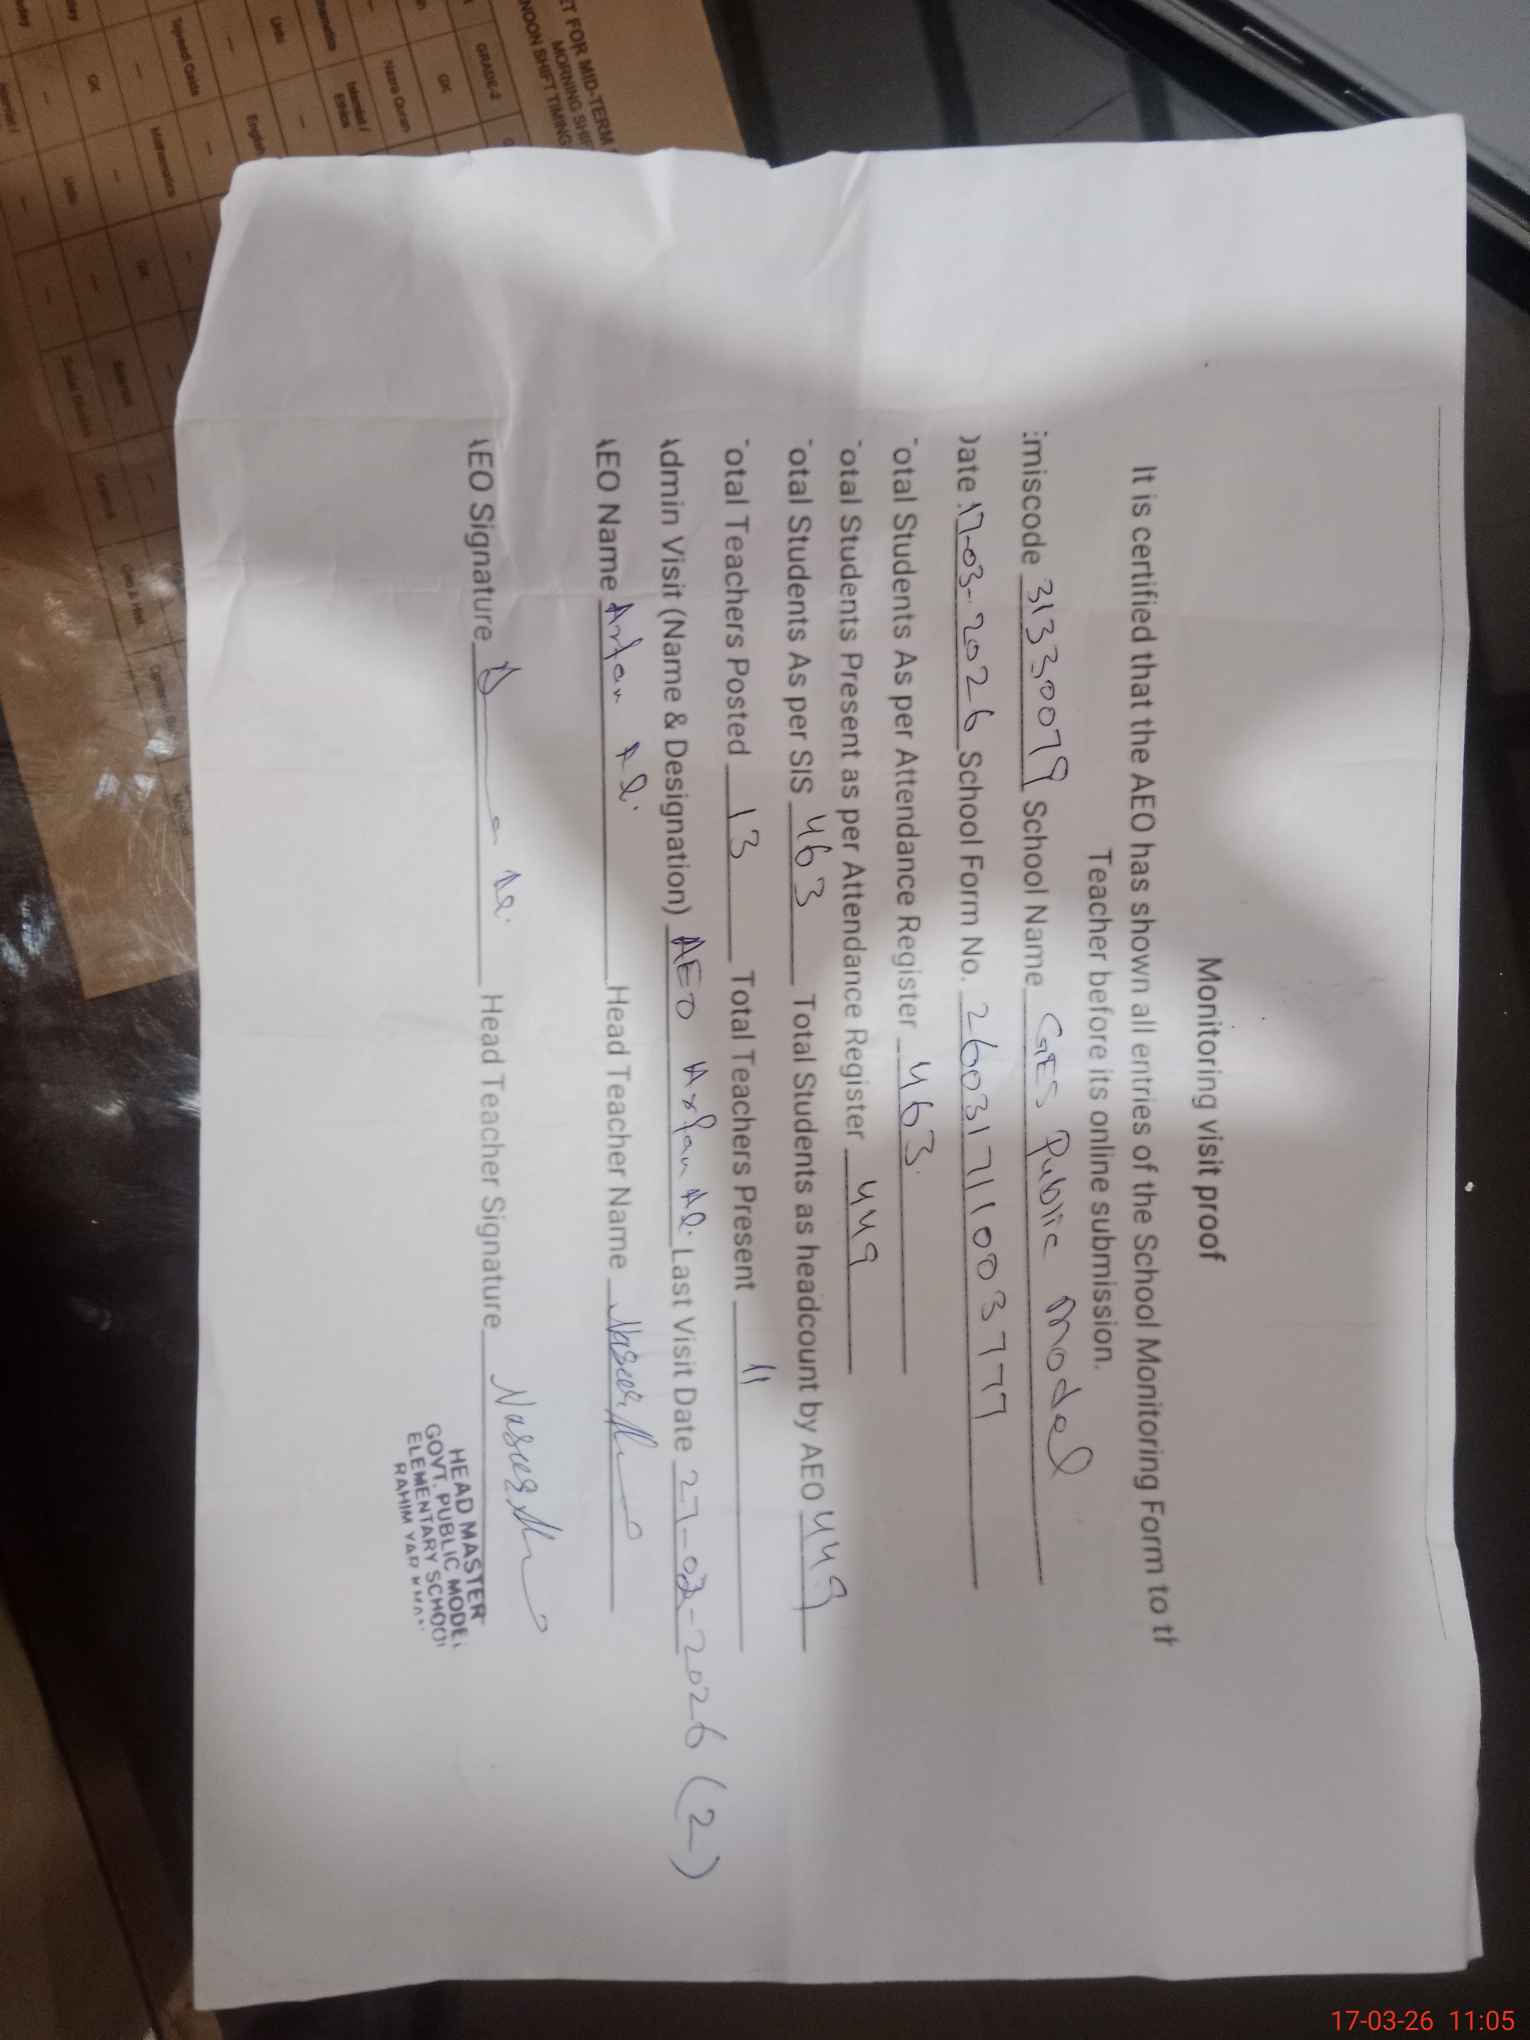 Monitoring visit proof
It is certified that the AEO has shown all entries of the School Monitoring Form to th
Teacher before its online submission.
Emiscode 31330079 School Name GES Public Model
Date 17-03-2026 School Form No. 26031711003777
Total Students As per Attendance Register 463
Total Students Present as per Attendance Register 449
Total Students As per SIS 463 Total Students as headcount by AEO 449
Total Teachers Posted 13 Total Teachers Present 11
Admin Visit (Name & Designation) AEO Arfan Ali Last Visit Date 27-02-2026 (2)
AEO Name Arfan Ali Head Teacher Name
AEO Signature Head Teacher Signature
HEAD MASTER
GOVT. PUBLIC MODEL
ELEMENTARY SCHOOL
RAHIM YAR KHAN
ET FOR MID-TERM
MORNING SHIF
NOON SHIFT TIMING
GRADE-2
GK
Nazra Quran
Islamiat / Ethics
English
Mathematics
Urdu
GK
17-03-26 11:05